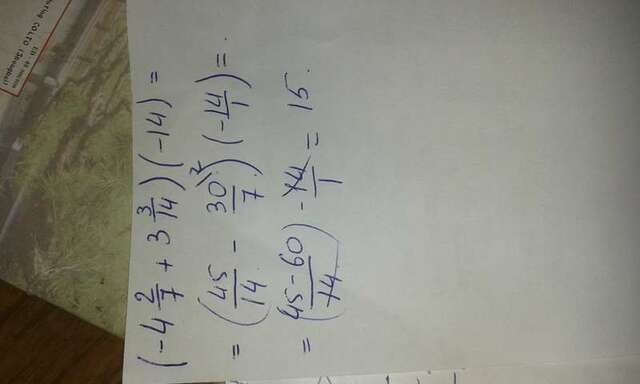 (-4 2/7 + 3 3/14)(-14) =
= (45/14 - 30/7 \2)(-14/1) =
= (45-60/14) - 14/1 = 15.